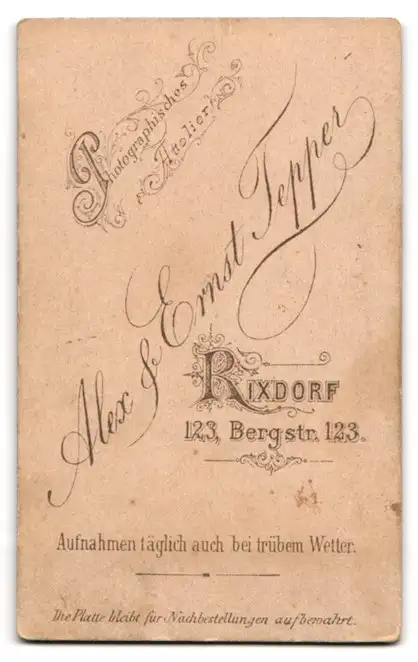 Photographisches
Attelier
Alex & Ernst Tepper
RIXDORF
123, Bergstr. 123.
Aufnahmen täglich auch bei trübem Wetter.
Die Platte bleibt für Nachbestellungen aufbewahrt.